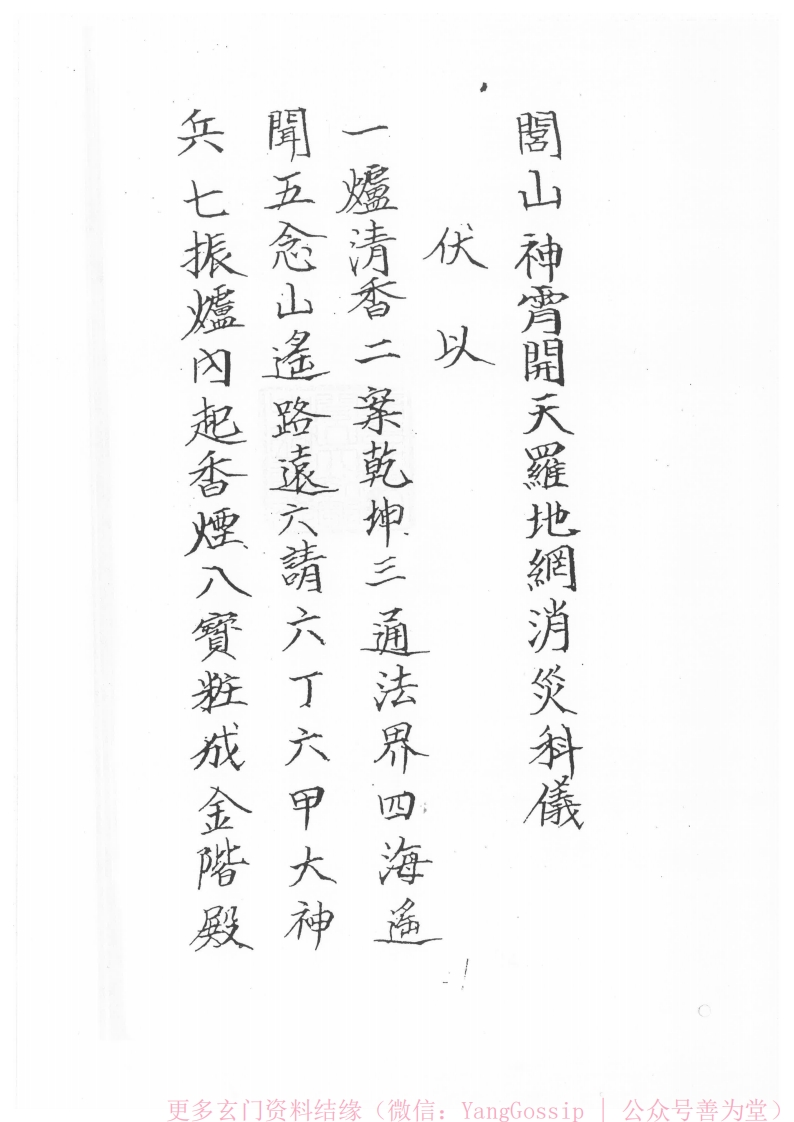 閭山神霄開天羅地網消災科儀
伏以
一爐清香二案乾坤三通法界四海遙
聞五念山遙路遠六請六丁六甲大神
兵七振爐內起香煙八寶粧成金階殿
更多玄门资料结缘（微信：YangGossip | 公众号善为堂）